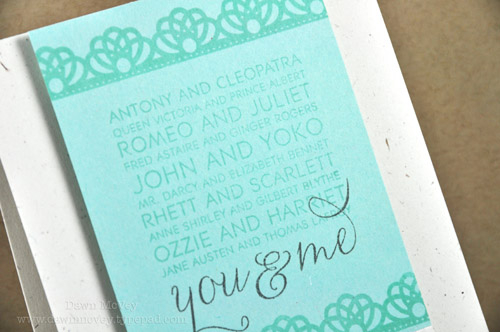 ANTONY AND CLEOPATRA
QUEEN VICTORIA AND PRINCE ALBERT
ROMEO AND JULIET
FRED ASTAIRE AND GINGER ROGERS
JOHN AND YOKO
MR. DARCY AND ELIZABETH BENNET
RHETT AND SCARLETT
ANNE SHIRLEY AND GILBERT BLYTHE
OZZIE AND HARRIET
JANE AUSTEN AND THOMAS
you & me
Dawn